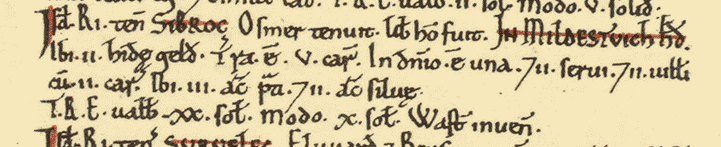 T. R. E. ualb. ii. sol. modo. v. solid.
Isd Ri. ten SIBROC. Osmer tenuit. lib ho fuit. IN MILDESTVICH HD.
Ibi. ii. hide geld. Tra. e. v. car. In dnio. e una. 7 ii. serui. 7 ii. uilli
cu. ii. car. Ibi. iii. ac pa. 7 ii. ac silue.
T. R. E. ualb. xx. sol. modo. x. sol. Wast inuen.
Isd. Ri. ten